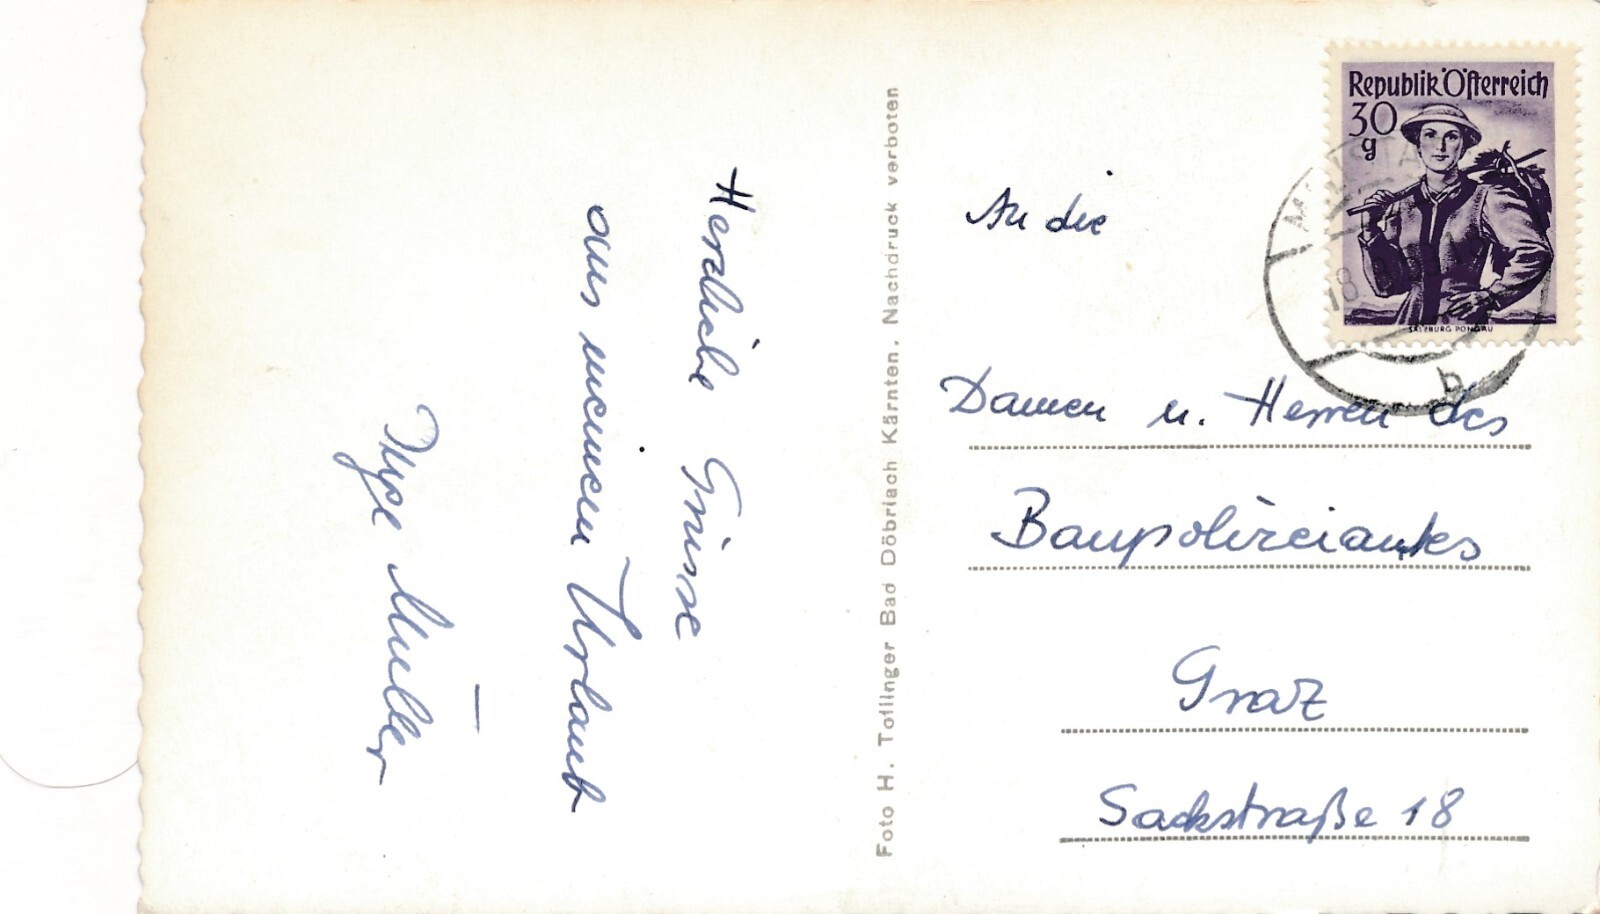 Herzliche Grüsse
aus meinem Urlaub
Müller
Foto H. Tollinger Bad Döbriach Kärnten. Nachdruck verboten
Republik Österreich
30
g
SALZBURG PONGAU
18.
b
An die
Damen u. Herren des
Baupolizeiamtes
Graz
Sackstraße 18